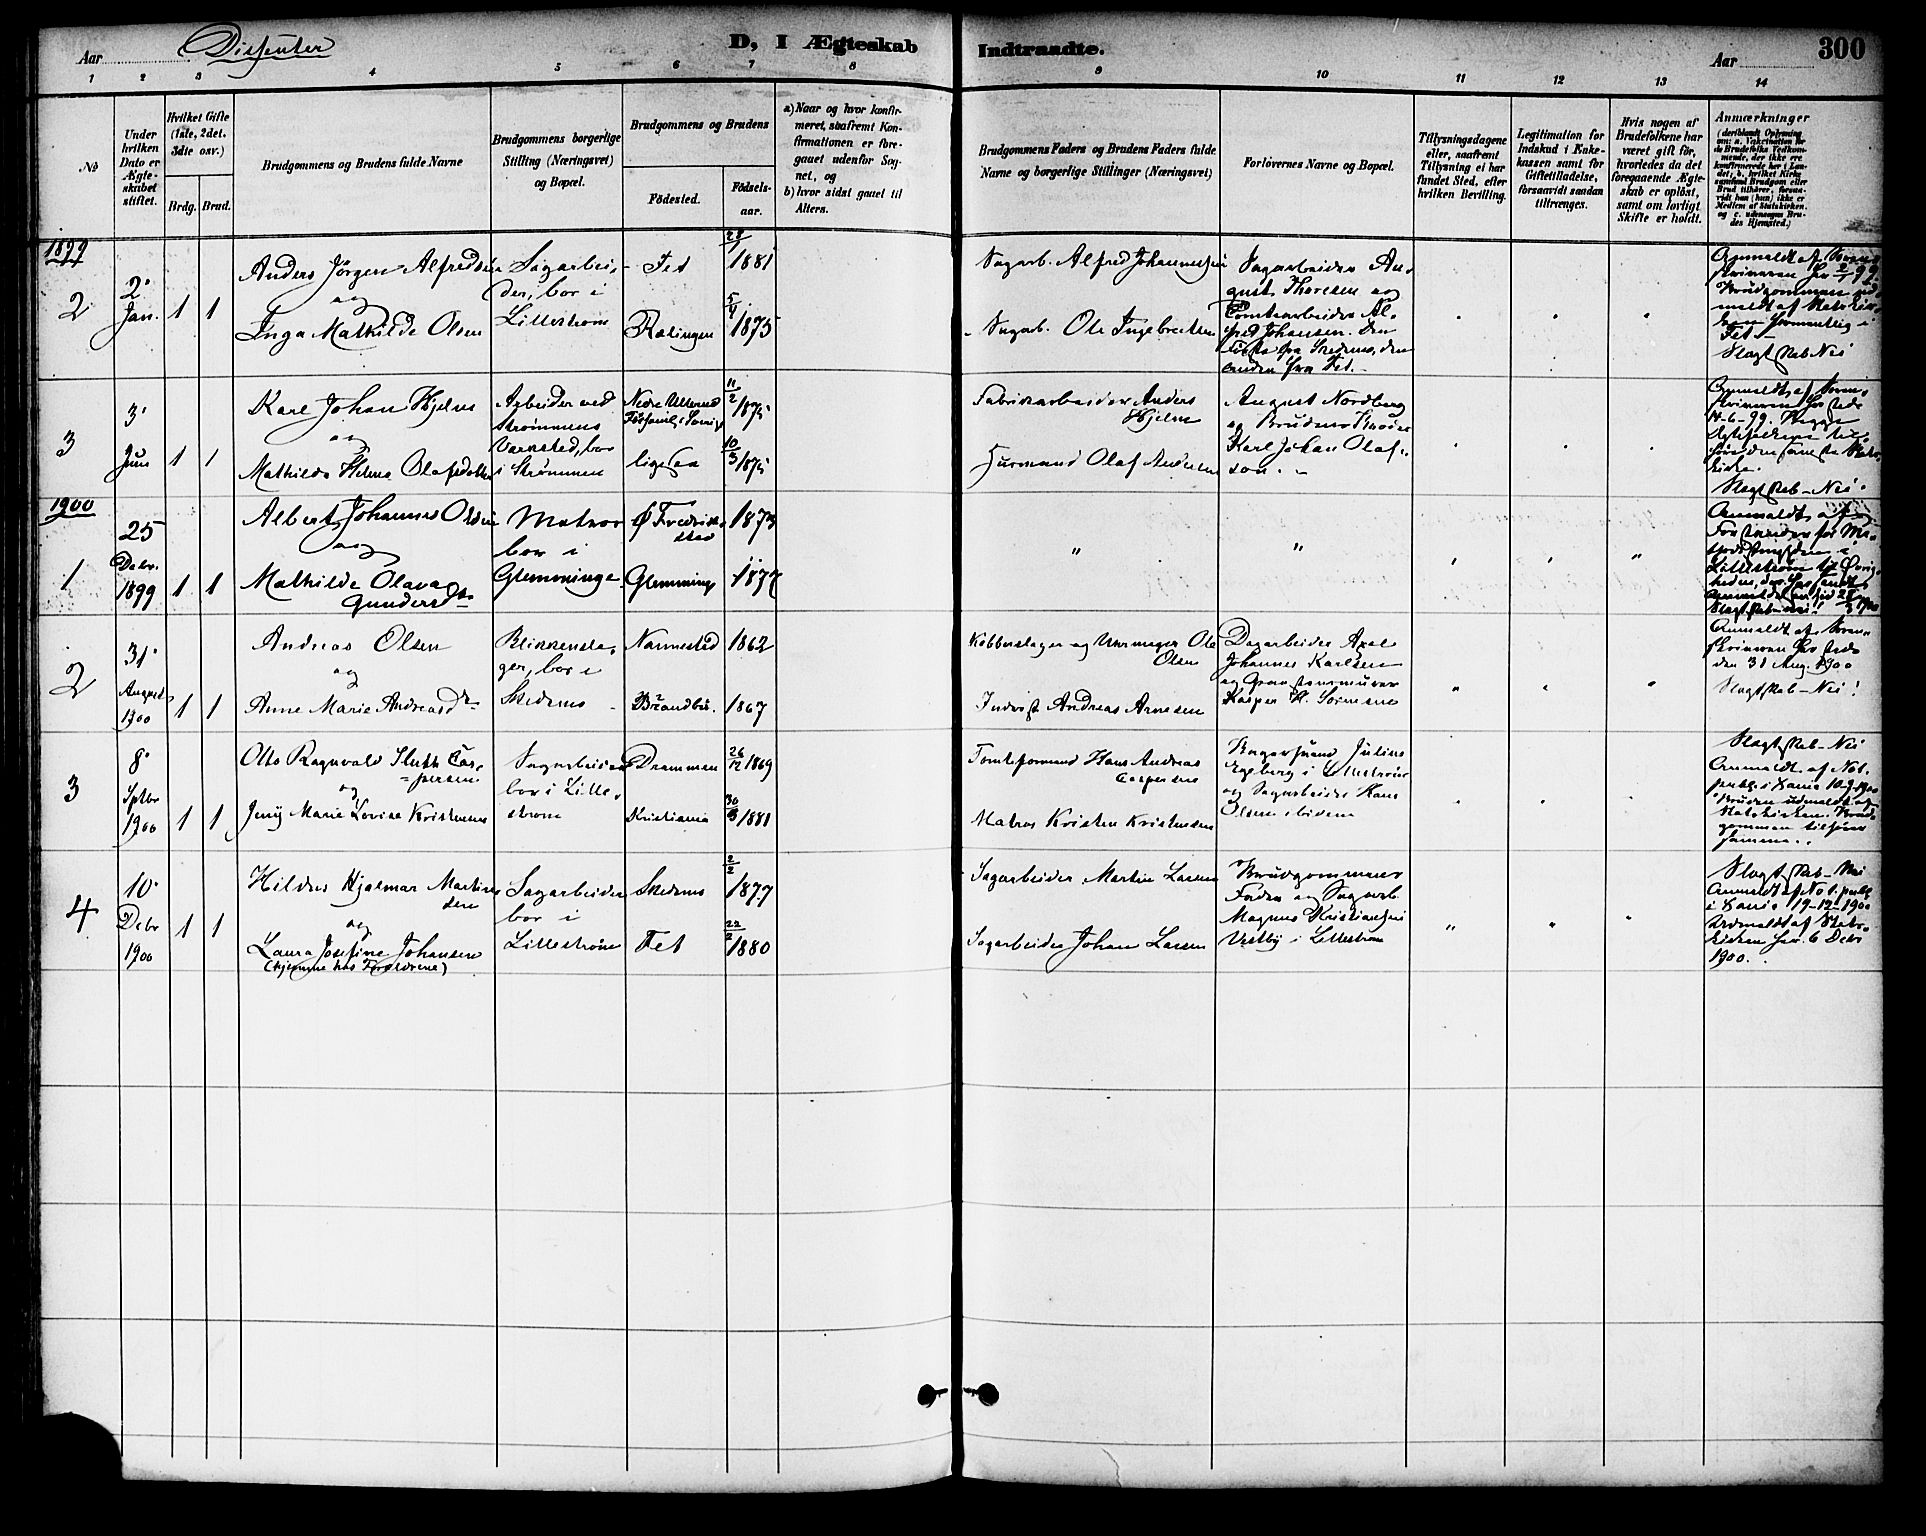 Aar
Dissenter
D, I Ægteskab
Indtraadte.
Aar
300
1 2 3 4 5 6 7 8
9 10 11 12 13 14
No
Under hvilken Dato er Ægteskabet stiftet.
Hvilket Gifte (1ste, 2det. 3dte osv.)
Brdg. Brud.
Brudgommens og Brudens fulde Navne
Brudgommens borgerlige Stilling (Næringsvei) og Bopæl.
Brudgommens og Brudens
Fødested.
Fødsels-aar.
a) Naar og hvor konfirmeret, saafremt Konfirmationen er foregaaet udenfor Sognet, og
b) hvor sidst gaaet til Alters.
Brudgommens Faders og Brudens Faders fulde Navne og borgerlige Stillinger (Næringsvei)
Forlovernes Navne og Bopæl.
Tillysningsdagene eller, saafremt Tillysning ei har fundet Sted, efter hvilken Bevilling.
Legitimation for Indskud i Enkekassen samt for Giftetilladelse, forsaavidt saadan tiltrænges.
Hvis nogen af Brudefolkene har været gift før, hvorledes da det foregaaende Ægteskab er opløst, samt om lovligt Skifte er holdt.
Anmærkninger
1899
2
2. Jan.
1 1
Anders Jörgen Alfredsen
og
Inga Mathilde Olsen
Sagarbeider, bor i
Lillestrøm
Fet
Rælingen
28/1 1881
5/4 1875
Sagarb. Alfred Johannesen
Sagarb. Ole Ingebretsen
Sagarbeider August Thoresen og
Tomtearbeider Alfred Johansen. Den
første fra Skedsmo, den
anden fra Fet.
Anmeldt af Sorenskriveren
Brudgommen udmeldt af Statskirken
Fet
Slægtskab Nei
3
3. Juni
1 1
Karl Johan Hjelm
og
Mathilda Helena Olafsdotter
Arbeider ved
Strømmens
Værksted, bor
i Strømmen
Nedre Ullerud
ligesaa
11/2 1875
10/3 1875
Fabrikarbeider Anders
Hjelm
Husmand Olaf Andersen
August Nordberg
og Brudens Broder
Karl Johan Olafson.
Anmeldt af Sorenskriveren
14-6-99. Begge
Slægtskab - Nei.
1900
1
25 Debr. 1899
1 1
Albert Johannes Olsen
og
Mathilde Olava
Gundersdtr
Matros
bor i
Glemminge
Fredrikstad
Glemminge
1873
1877
Anmeldt af
Forstander for Metodistmenigheden i
Lillestrøm til Øvrigheden
Slægtskab nei!
2
31. August 1900
1 1
Andreas Olsen
og
Anne Marie Andreasdtr
Blikkenslager, bor i
Skedsmo
Nannestad
Brandbu.
1862
1867
Kobberslager og Urmager Ole
Olsen
Inderst Andreas Arnesen
Dagarbeider Axel
Johannes Karlsen
og
Kasper H. Sørensen
Anmeldt af Sorenskriveren
den 31 Aug. 1900
Slægtskab - Nei!
3
8. Sptbr 1900
1 1
Otto Ragnvald Caspersen
og
Jenny Marie Lovise Kristensen
Sagarbeider
bor i Lillestrøm
Drammen
Kristiania
26/12 1869
30/3 1881
Tomteformand Hans Andreas
Caspersen
Matros Kristen Kristensen
Bagersvend Julius
Egeberg i Lillestrøm
og Sagarbeider Hans
Olsen ibidem
Slægtskab - Nei
Anmeldt af Not.
publ. i Xania 10-9-1900
Bruden udmeldt af
Statskirken. Brudgommen tilhører
samme.
4
10. Debr 1900
1 1
Hildus Hjalmar Martinsen
og
Laura Josefine Johansen
(hjemme hos Forældrene)
Sagarbeider
bor i
Lillestrøm
Skedsmo
Fet
2/2 1877
22/2 1880
Sagarbeider Martin Larsen
Sagarbeider Johan Larsen
Brudgommens
Fader og Sagarb.
Magnus Kristiansen
Vestby i Lillestrøm
Slægtskab - Nei
Anmeldt af Not. publ.
i Xania 19-12-1900
Udmeldt af Statskirken
6 Debr
1900.